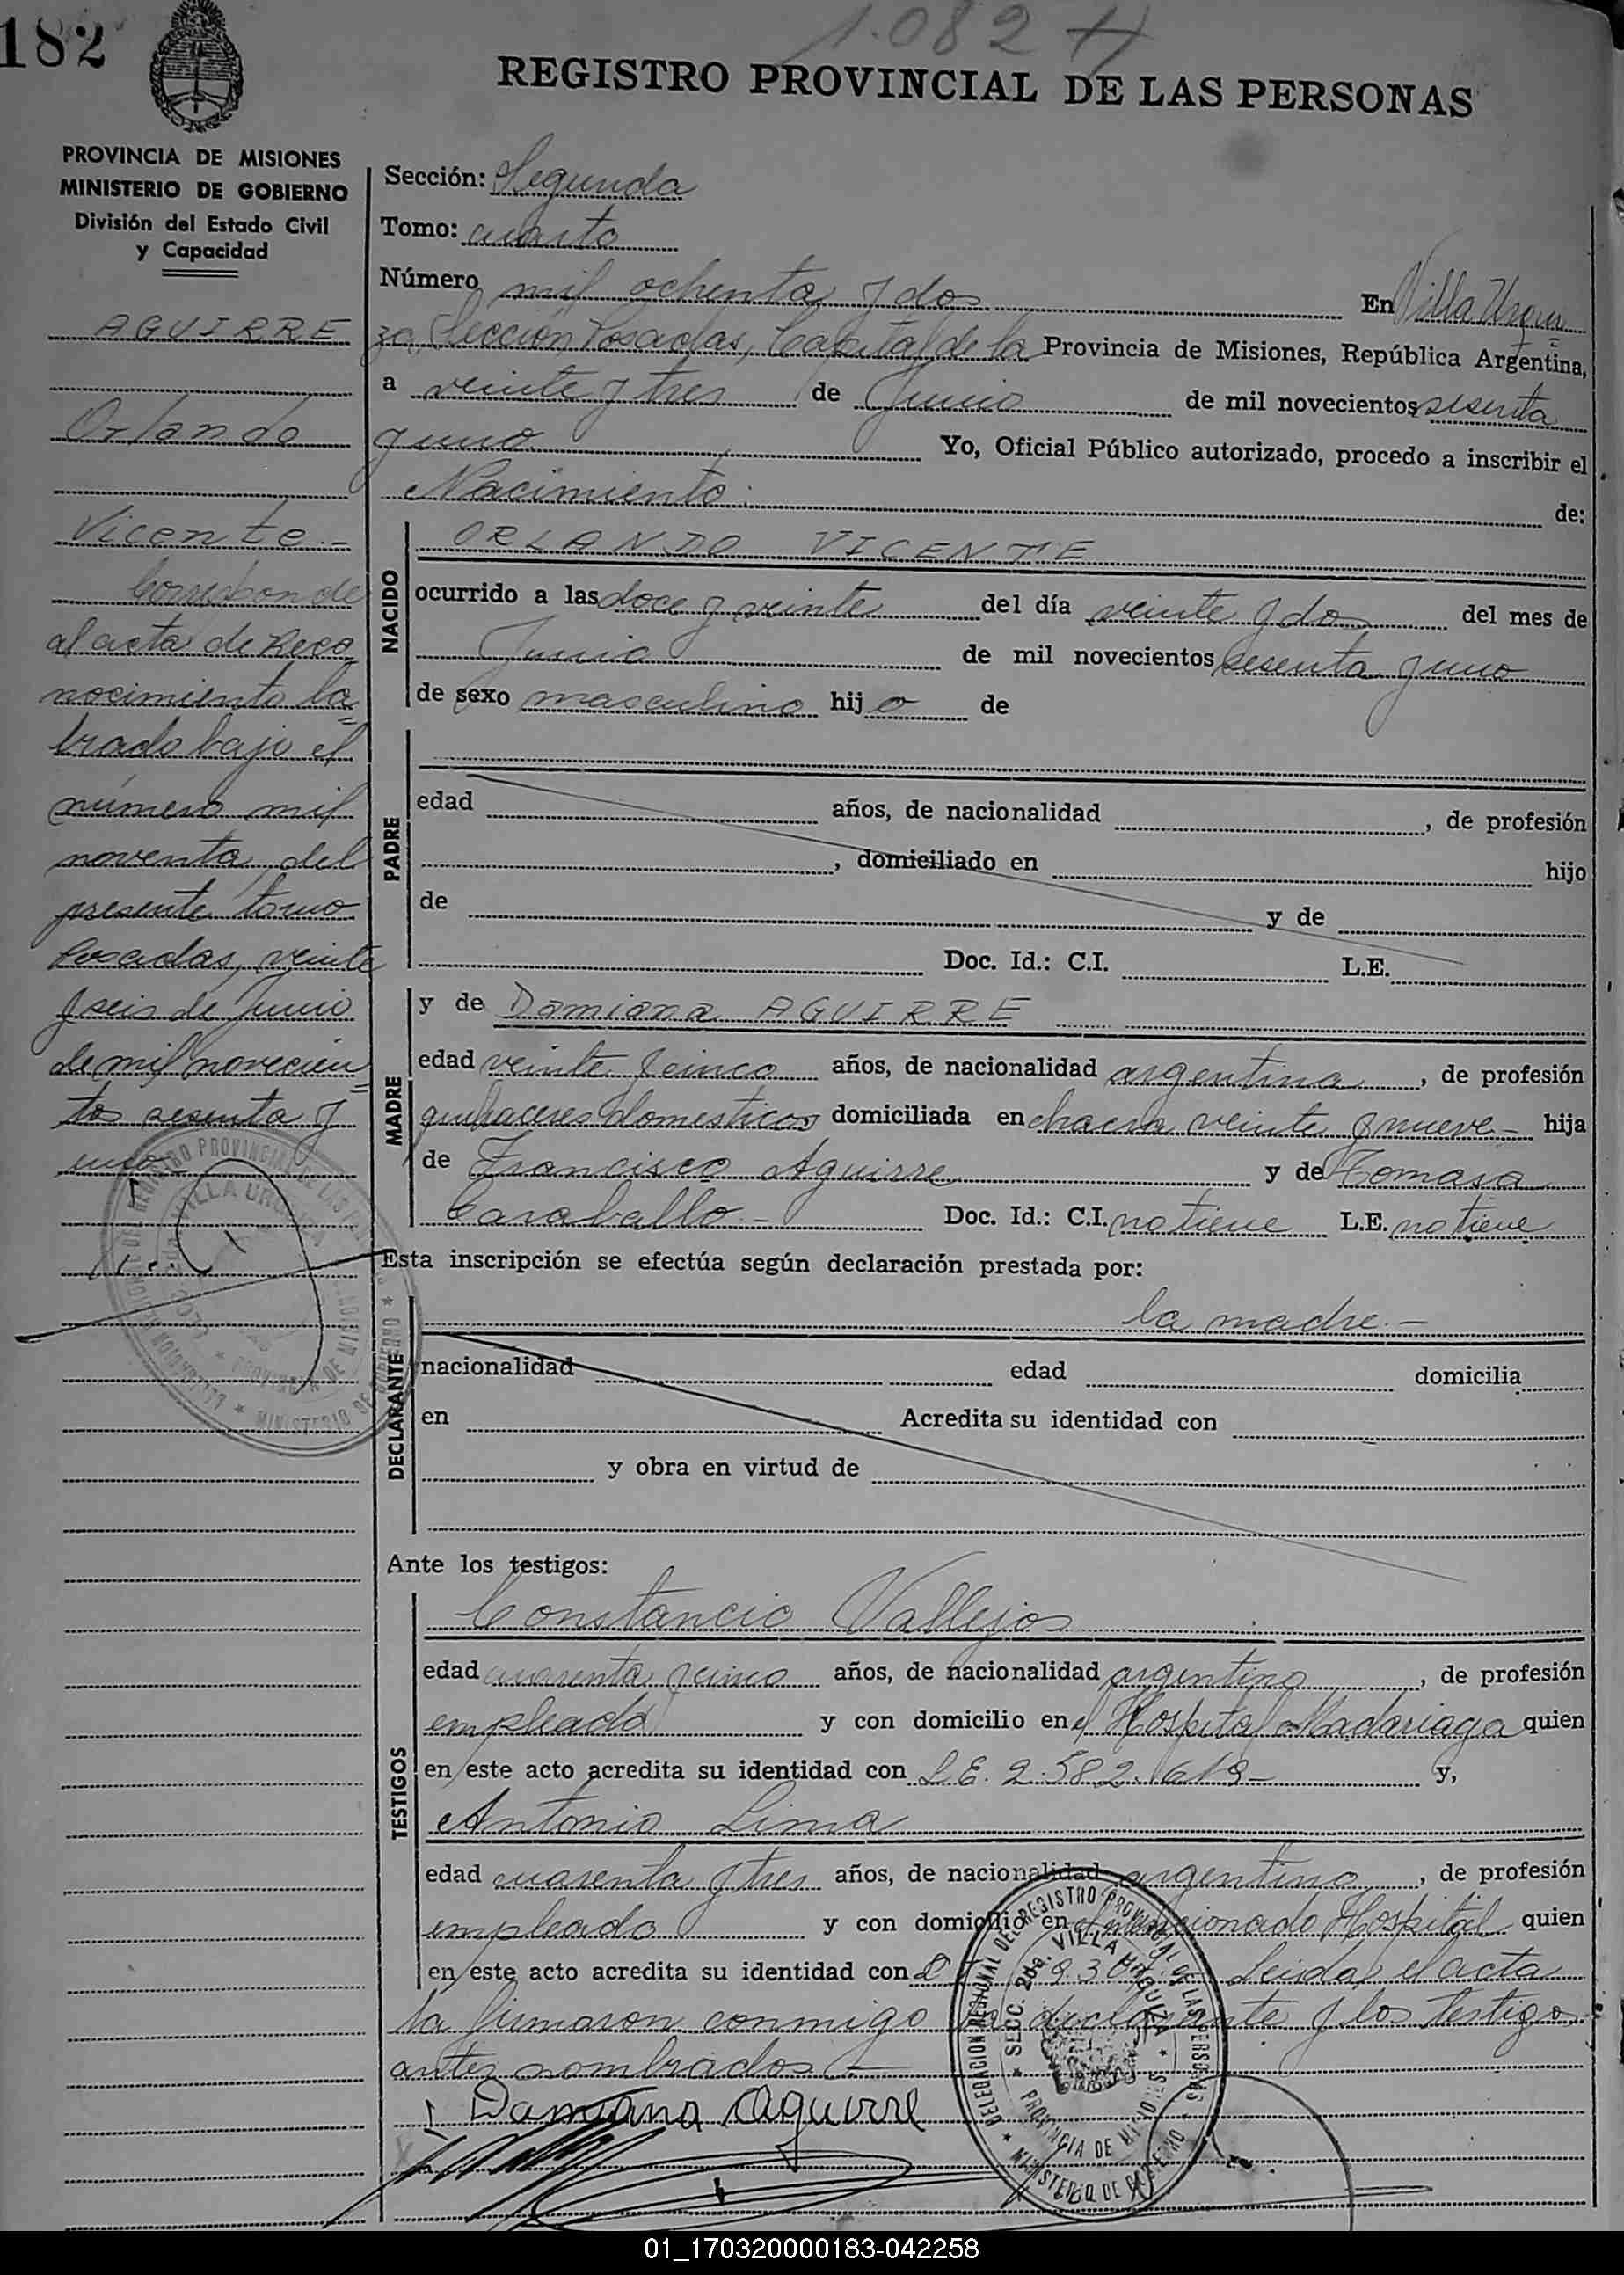 182
1.082
REGISTRO PROVINCIAL DE LAS PERSONAS
PROVINCIA DE MISIONES
MINISTERIO DE GOBIERNO
División del Estado Civil
y Capacidad
AGUIRRE
Orlando
Vicente.-
Corresponde
al acta de Reco
nocimiento la=
brado bajo el
número mil
noventa, del
presente tomo
Posadas, veinte
y seis de Junio
de mil novecien=
tos sesenta y
uno
Sección: Segunda
Tomo: cuarto
Número mil ochenta y dos En Villa Urqui=
za, Sección, Posadas, Capital de la Provincia de Misiones, República Argentina,
a veinte y tres de Junio de mil novecientos sesenta
y uno Yo, Oficial Público autorizado, procedo a inscribir el
Nacimiento. de:
NACIDO
ORLANDO VICENTE
ocurrido a las doce y veinte del día veinte y dos del mes de
Junio de mil novecientos sesenta y uno
de sexo masculino hijo de
PADRE
edad años, de nacionalidad , de profesión
, domiciliado en hijo
de y de
Doc. Id.: C.I. L.E.
MADRE
y de Damiana AGUIRRE
edad veinte y cinco años, de nacionalidad argentina , de profesión
quehaceres domesticos domiciliada en chacra veinte y nueve - hija
de Francisco Aguirre y de Tomasa
Caraballo - Doc. Id.: C.I. no tiene L.E. no tiene
Esta inscripción se efectúa según declaración prestada por:
DECLARANTE
la madre.-
nacionalidad edad domicilia
en Acredita su identidad con
y obra en virtud de
Ante los testigos:
TESTIGOS
Constancio Vallejos
edad cuarenta y cinco años, de nacionalidad argentino , de profesión
empleado y con domicilio en el Hospital Madariaga quien
en este acto acredita su identidad con L.E. 2.582.619- y,
Antonio Lima
edad cuarenta y tres años, de nacionalidad argentino , de profesión
empleado y con domicilio en Hospital quien
en este acto acredita su identidad con Leida el acta
la firmaron conmigo la declarante y los testigos
antes nombrados.-
Damiana Aguirre
DELEGACION REGIONAL DEL REGISTRO PROVINCIAL DE LAS PERSONAS
SECC. 2da. VILLA URQUIZA
PROVINCIA DE MISIONES
MINISTERIO DE GOBIERNO
01_170320000183-042258